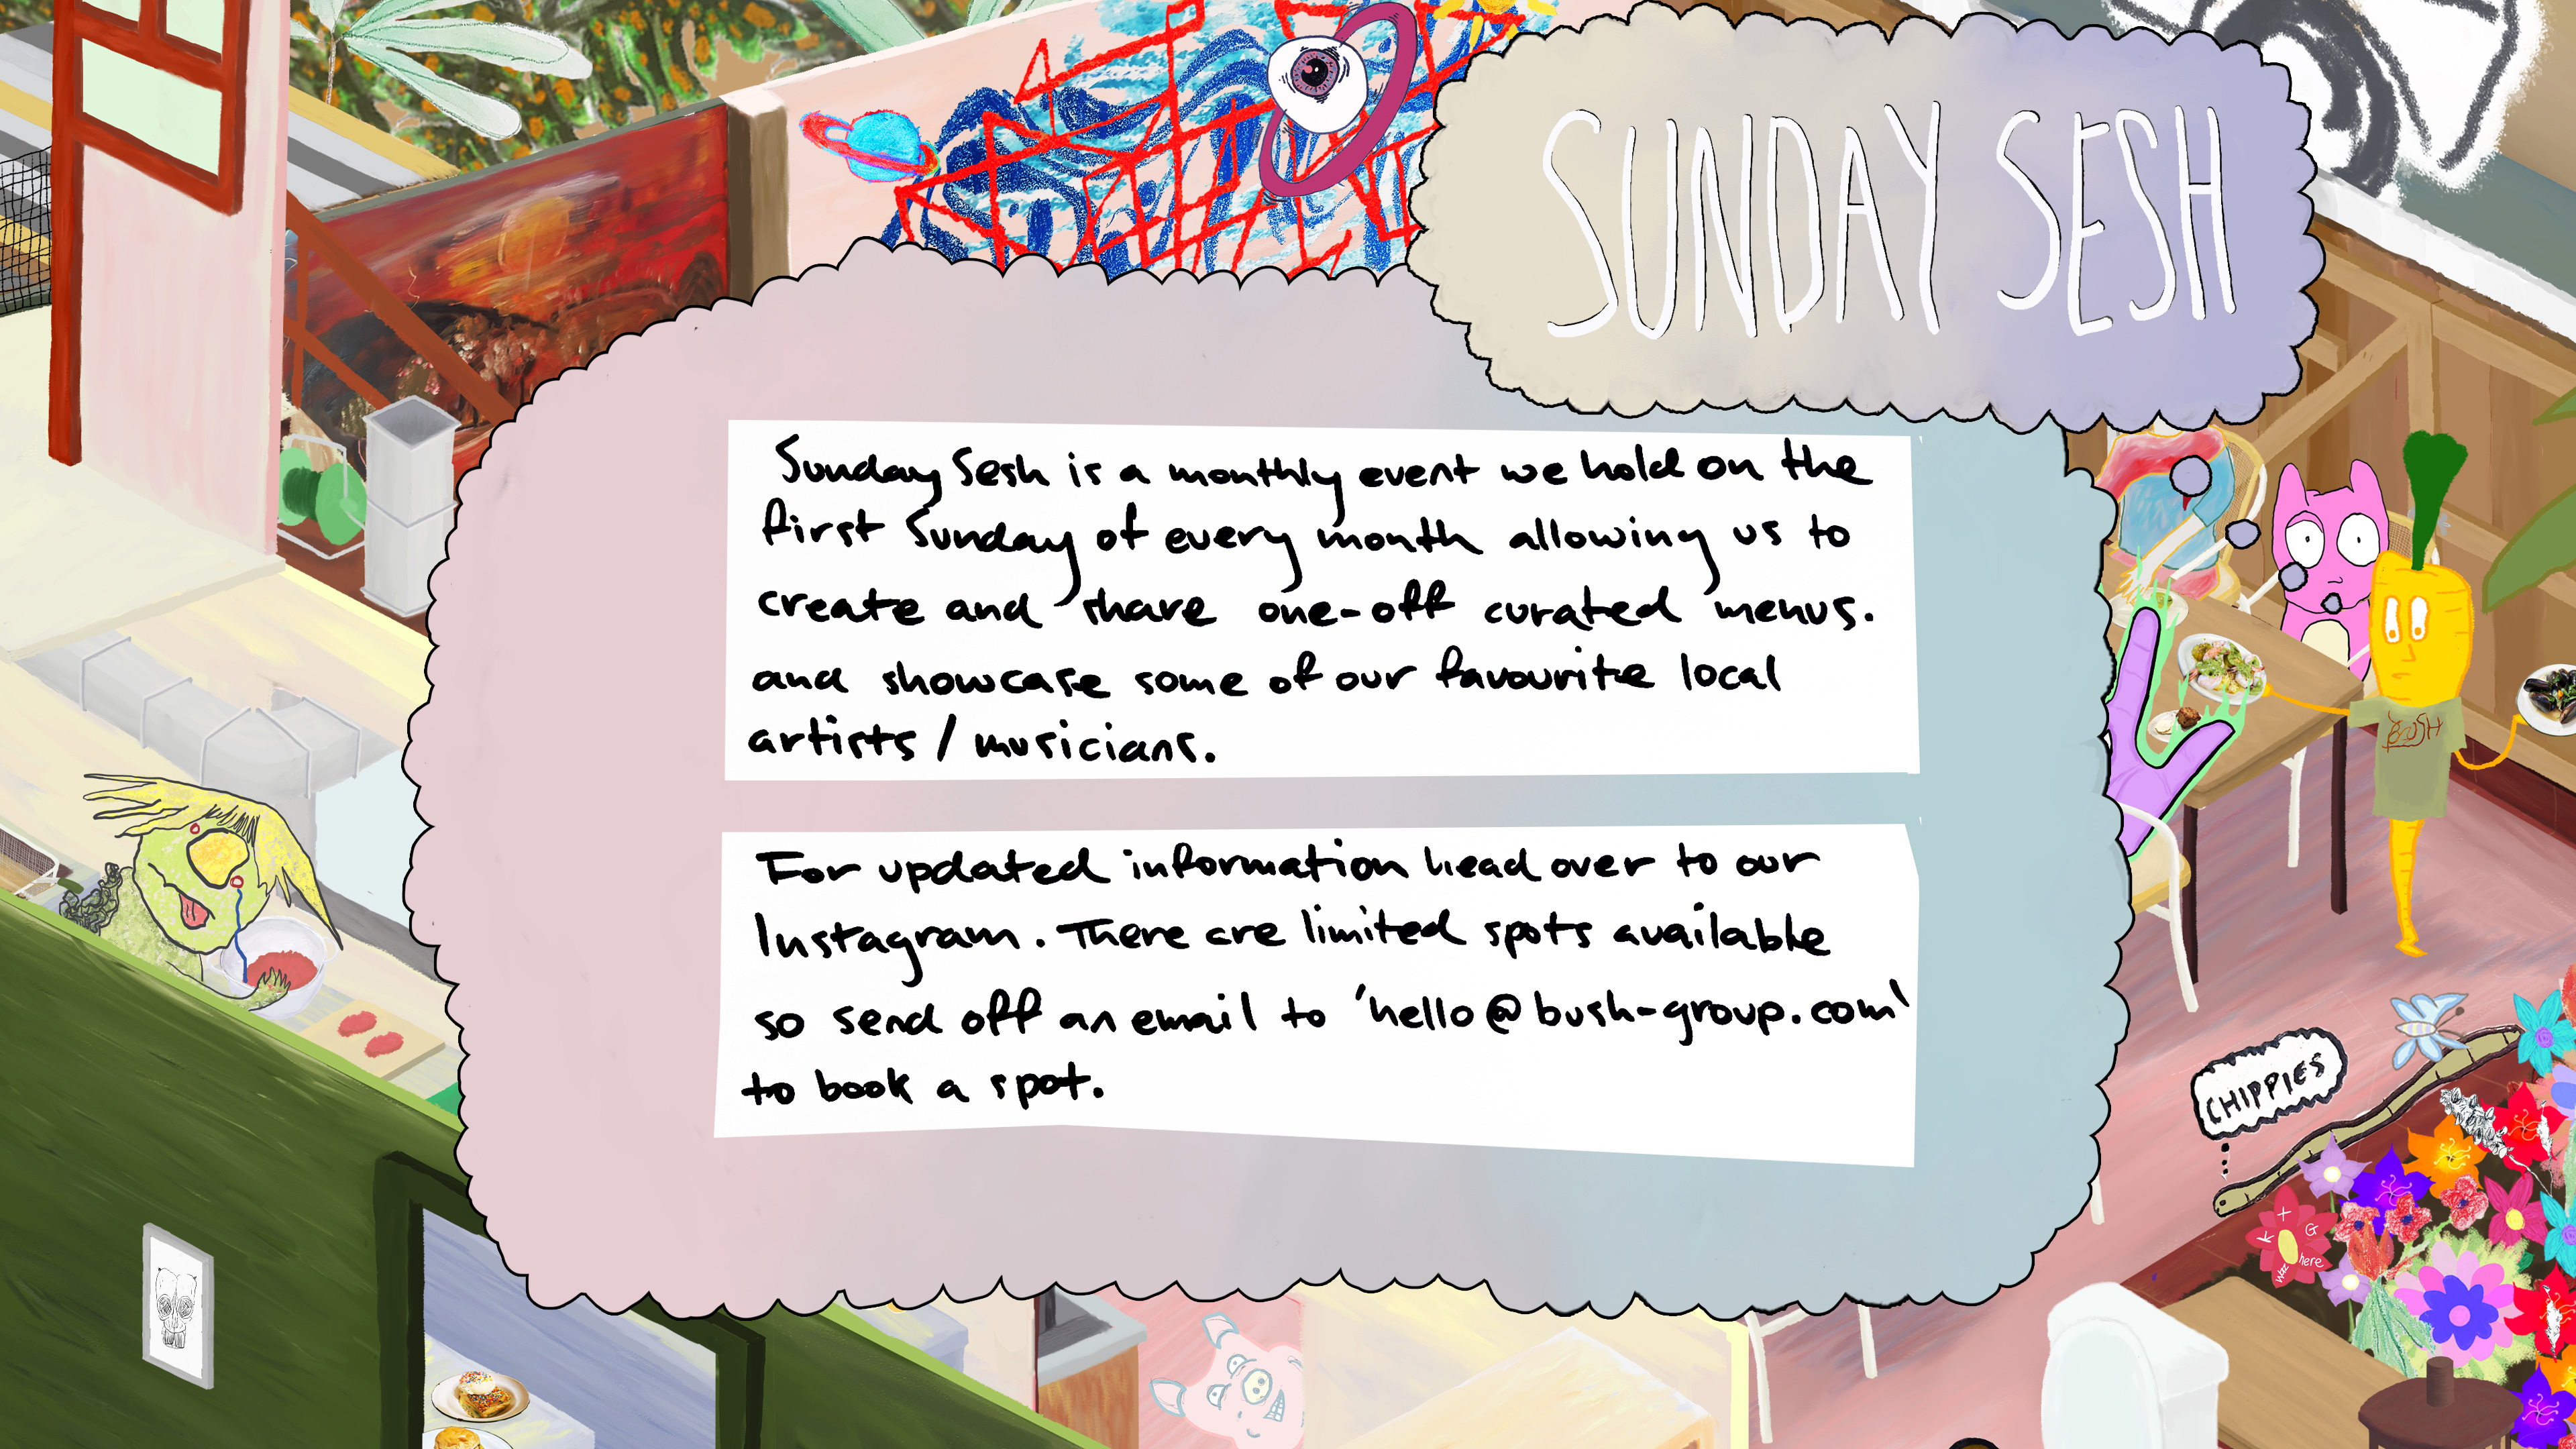 SUNDAY SESH
Sunday Sesh is a monthly event we hold on the
first Sunday of every month allowing us to
create and share one-off curated menus.
and showcase some of our favourite local
artists / musicians.
For updated information head over to our
Instagram. There are limited spots available
so send off an email to 'hello@bush-group.com'
to book a spot.
BUSH
CHIPPIES
K + G
woz here